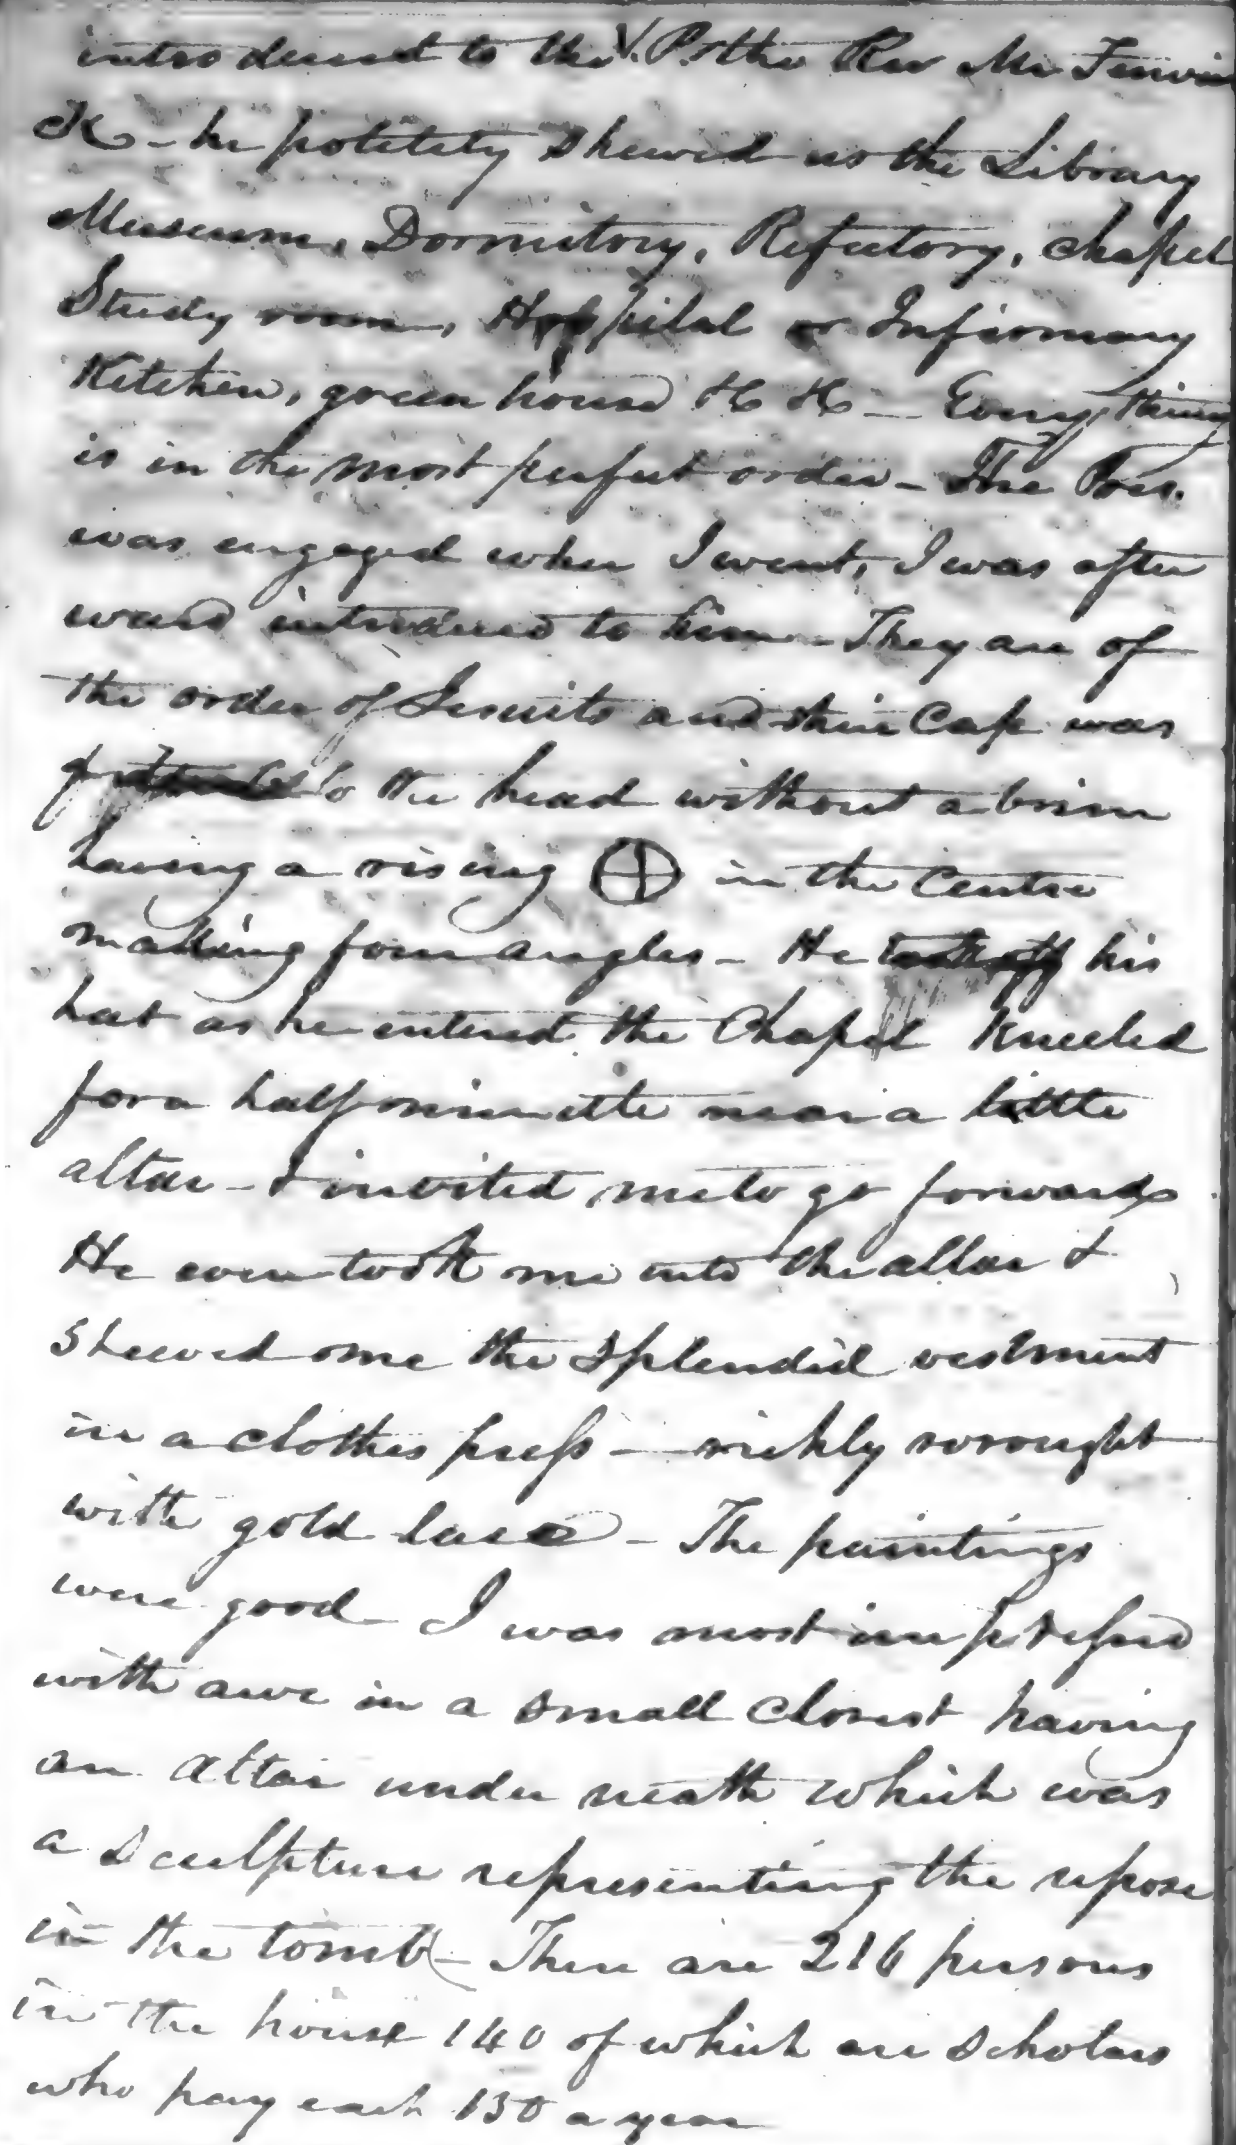 introduced to the V. P. the Rev Mr Fenwick
&c - he politely shewed us the Library
Museum, Dormitory, Refectory, chapel
Study room, Hospital or Infirmary
Kitchen, green house &c &c - Every thing
is in the most perfect order - The Pres.
was engaged when I went, I was after
ward introduced to him - They are of
the order of Jesuits and their Cap was
to the head without a brim
having a rising ⊕ in the Centre
making four angles - He took off his
hat as he entered the Chapel kneeled
for a half minute near a little
altar - & invited me to go forwards
He even took me into the altar &
shewed me the splendid vestment
in a clothes press - richly wrought
with gold lace - The paintings
were good I was most impressed
with awe in a small closest having
an altar under neath which was
a sculpture representing the repose
in the tomb - There are 216 persons
in the house 140 of which are scholars
who pay each 150 a year